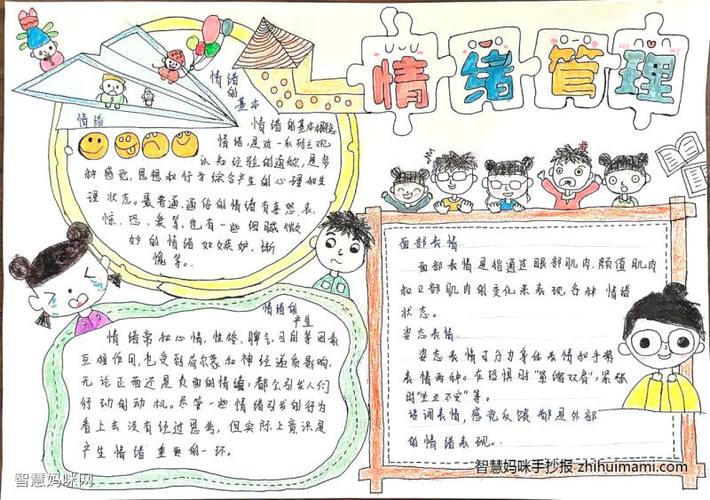 情绪管理
情绪
的
基本
情绪
情绪的基本概念
情绪,是对一系列主观
认知经验的通称,是多
种感觉、思想和行为综合产生的心理和生
理状态。最普遍、通俗的情绪有喜、怒、哀、
惊、恐、爱等,也有一些细腻微
妙的情绪如嫉妒、惭
愧等。
情绪的
产生
情绪常和心情、性格、脾气、目的等因素
互相作用,也受到荷尔蒙和神经递质影响,
无论正面还是负面的情绪,都会引发人们
行动的动机。尽管一些情绪引发的行为
看上去没有经过思考,但实际上意识是
产生情绪重要的一环。
面部表情
面部表情是指通过眼部肌肉、颜值肌肉
和口部肌肉的变化来表现各种情绪
状态。
姿态表情
姿态表情可分为身体表情和手势
表情两种。在恐惧时"紧缩双肩",紧张
时"坐立不安"等。
语调表情,感觉反馈都是外部
的情绪表现。
智慧妈咪手抄报 zhihuimami.com
智慧妈咪网